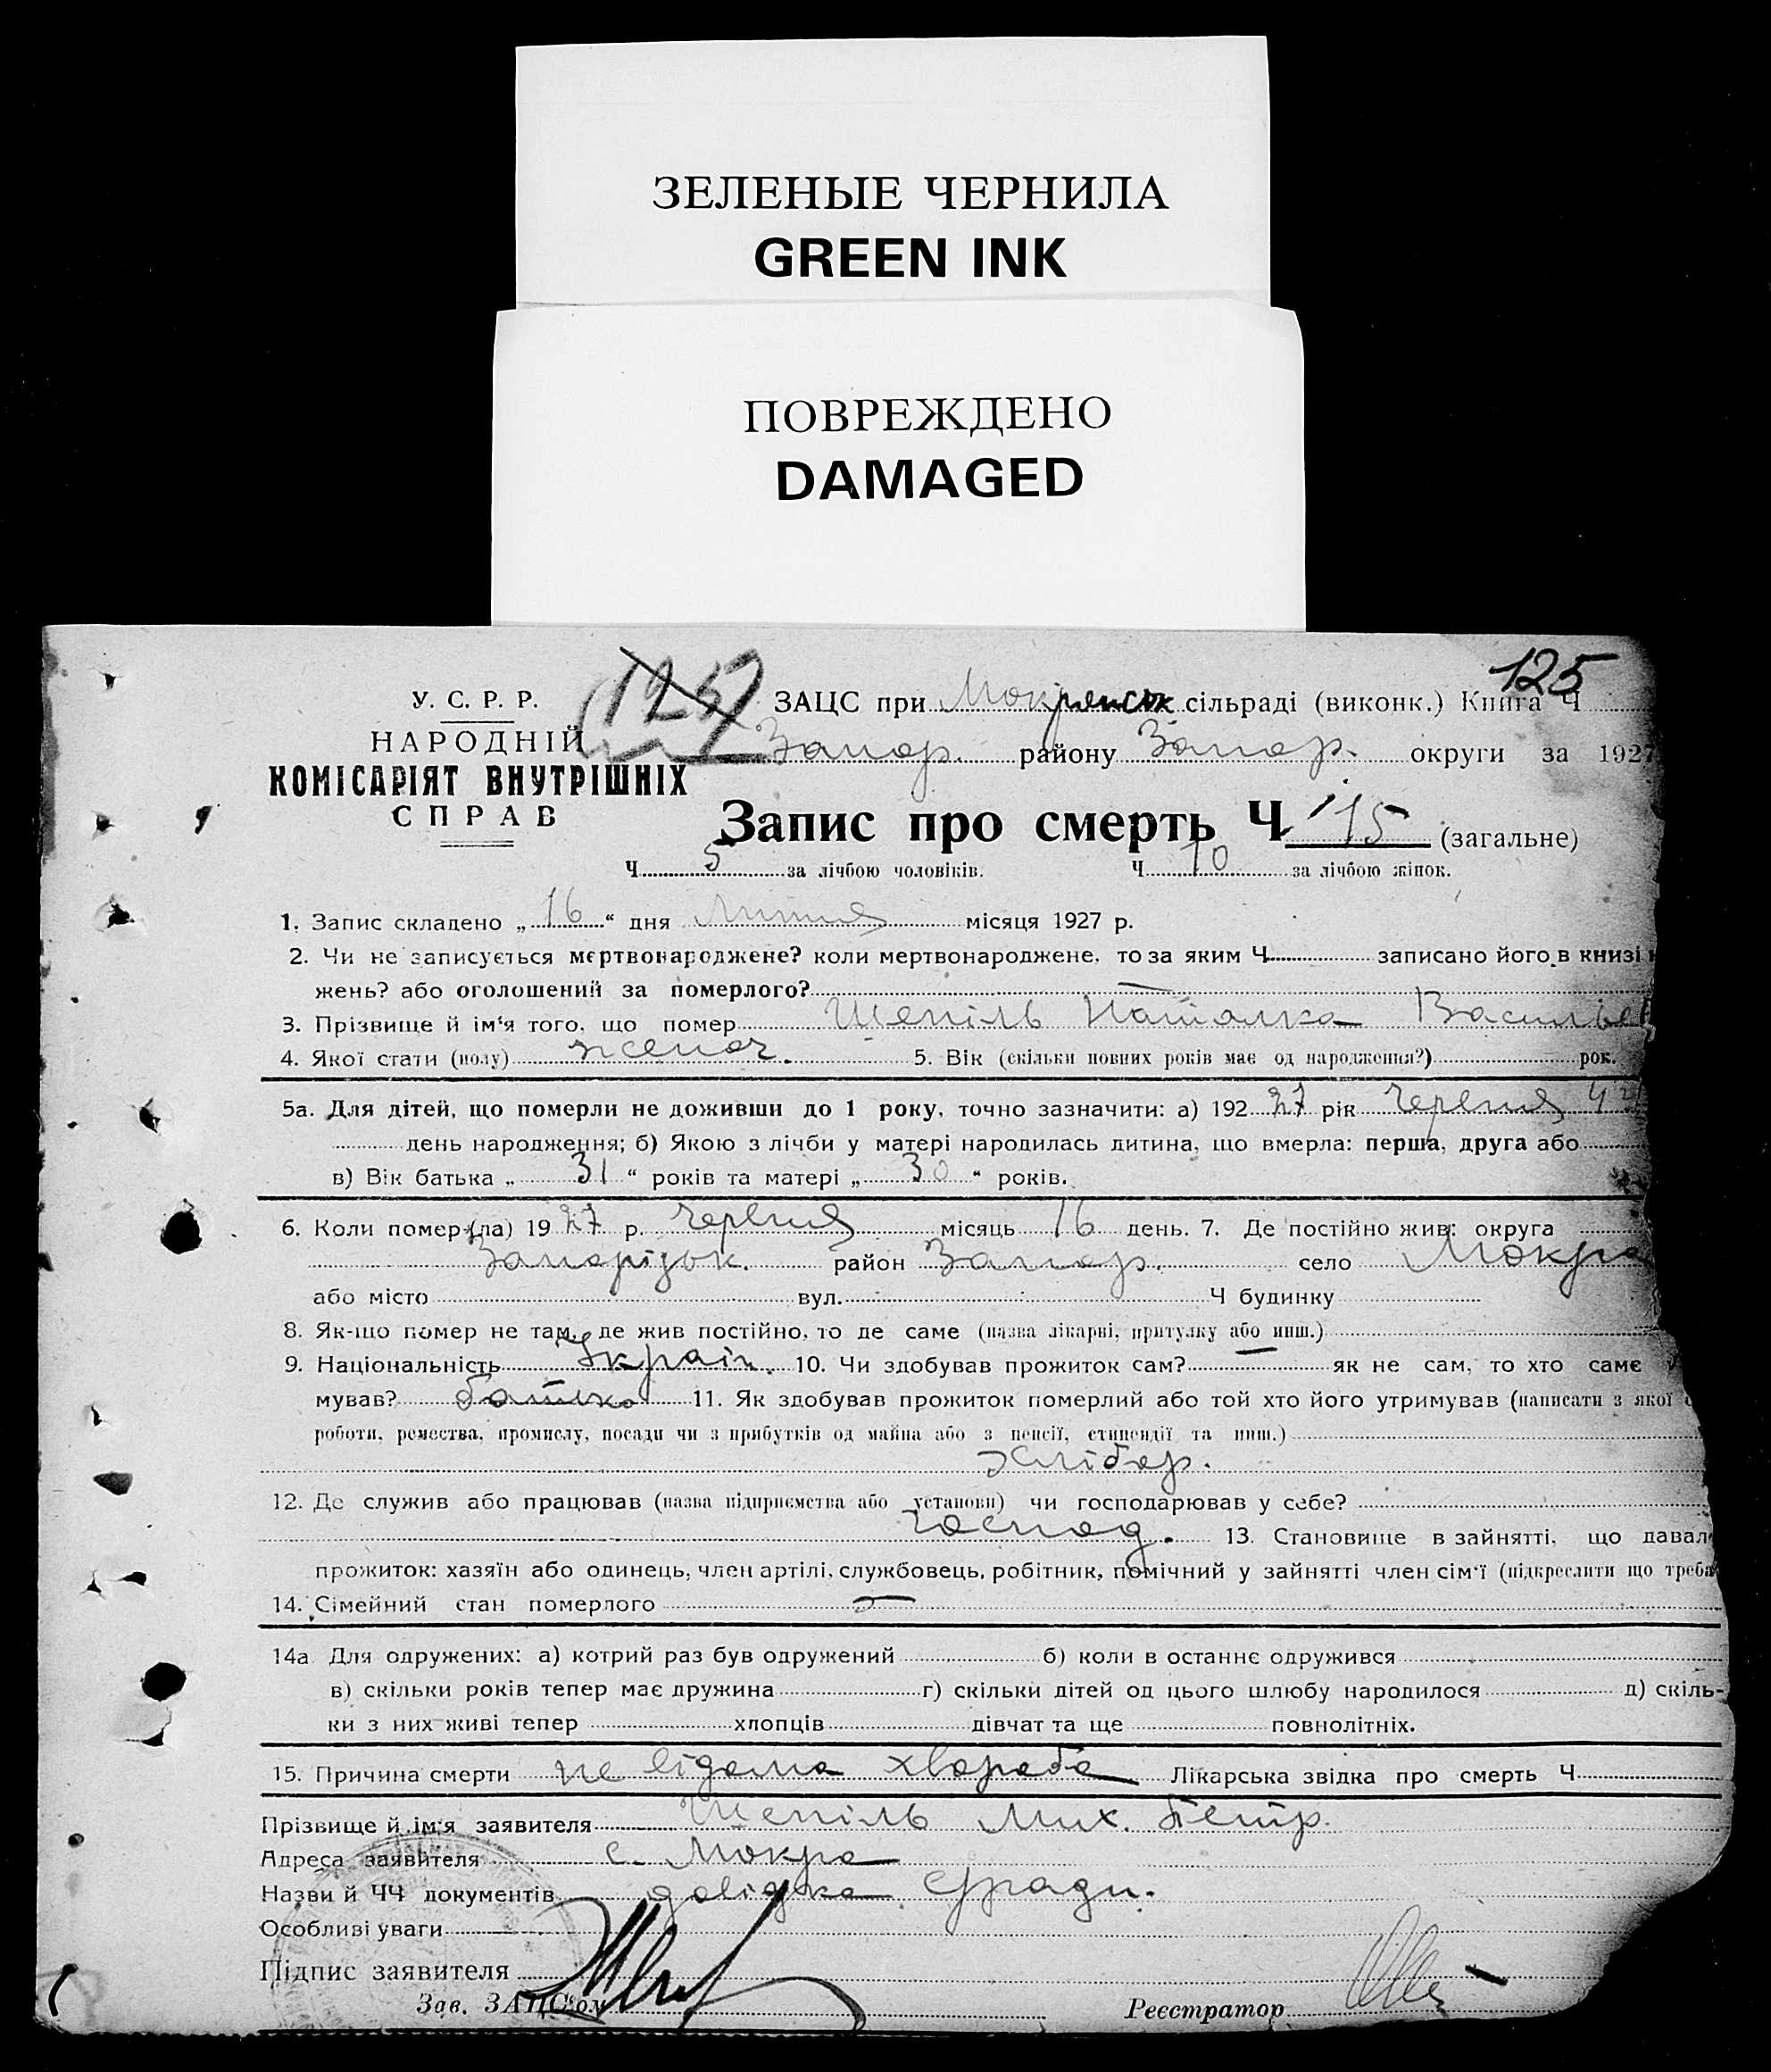 ЗЕЛЕНЫЕ ЧЕРНИЛА
GREEN INK
ПОВРЕЖДЕНО
DAMAGED
125
У. С. Р. Р.
НАРОДНІЙ
КОМІСАРІЯТ ВНУТРІШНІХ
СПРАВ
ЗАЦС при Мокрянськ. сільраді (виконк.) Книга Ч
Запор. району Запор. округи за 1927
Запис про смерть Ч 15 (загальне)
Ч 5 за лічбою чоловіків. Ч 10 за лічбою жінок.
1. Запис складено „16“ дня Липня місяця 1927 р.
2. Чи не записується мертвонароджене? коли мертвонароджене, то за яким Ч записано його в книзі
жень? або оголошений за померлого? —
3. Прізвище й ім'я того, що помер Шепіль Наталка Васильев
4. Якої стати (полу) жіноч. 5. Вік (скільки повних років має од народження?) рок.
5а. Для дітей, що померли не доживши до 1 року, точно зазначити: а) 192 27 рік червня 4
день народження; б) Якою з лічби у матері народилась дитина, що вмерла: перша, друга або
в) Вік батька „31“ років та матері „30“ років.
6. Коли помер(ла) 1927 р. червня місяць 16 день. 7. Де постійно жив: округа
Запорізьк. район Запор. село Мокра
або місто вул. Ч будинку
8. Як-що помер не там, де жив постійно, то де саме (назва лікарні, притулку або инш.) —
9. Національність Україн. 10. Чи здобував прожиток сам? — як не сам, то хто саме
мував? батько 11. Як здобував прожиток померлий або той хто його утримував (написати з якої
роботи, ремества, промислу, посади чи з прибутків од майна або з пенсії, стипендії та инш.)
хлібор.
12. Де служив або працював (назва підприємства або установи) чи господарював у себе?
господ. 13. Становище в зайнятті, що давал
прожиток: хазяїн або одинець, член артілі, службовець, робітник, помічний у зайнятті член сім'ї (підкреслити що треба
14. Сімейний стан померлого —
14а Для одружених: а) котрий раз був одружений б) коли в останнє одружився
в) скільки років тепер має дружина г) скільки дітей од цього шлюбу народилося д) скіль-
ки з них живі тепер хлопців дівчат та ще повнолітніх.
15. Причина смерти не відома хвороба Лікарська звідка про смерть Ч
Прізвище й ім'я заявителя Шепіль Мих. Петр.
Адреса заявителя с. Мокра
Назви й ЧЧ документів довідка с/ради.
Особливі уваги
Підпис заявителя
Зав. ЗАЦС'ом Реєстратор